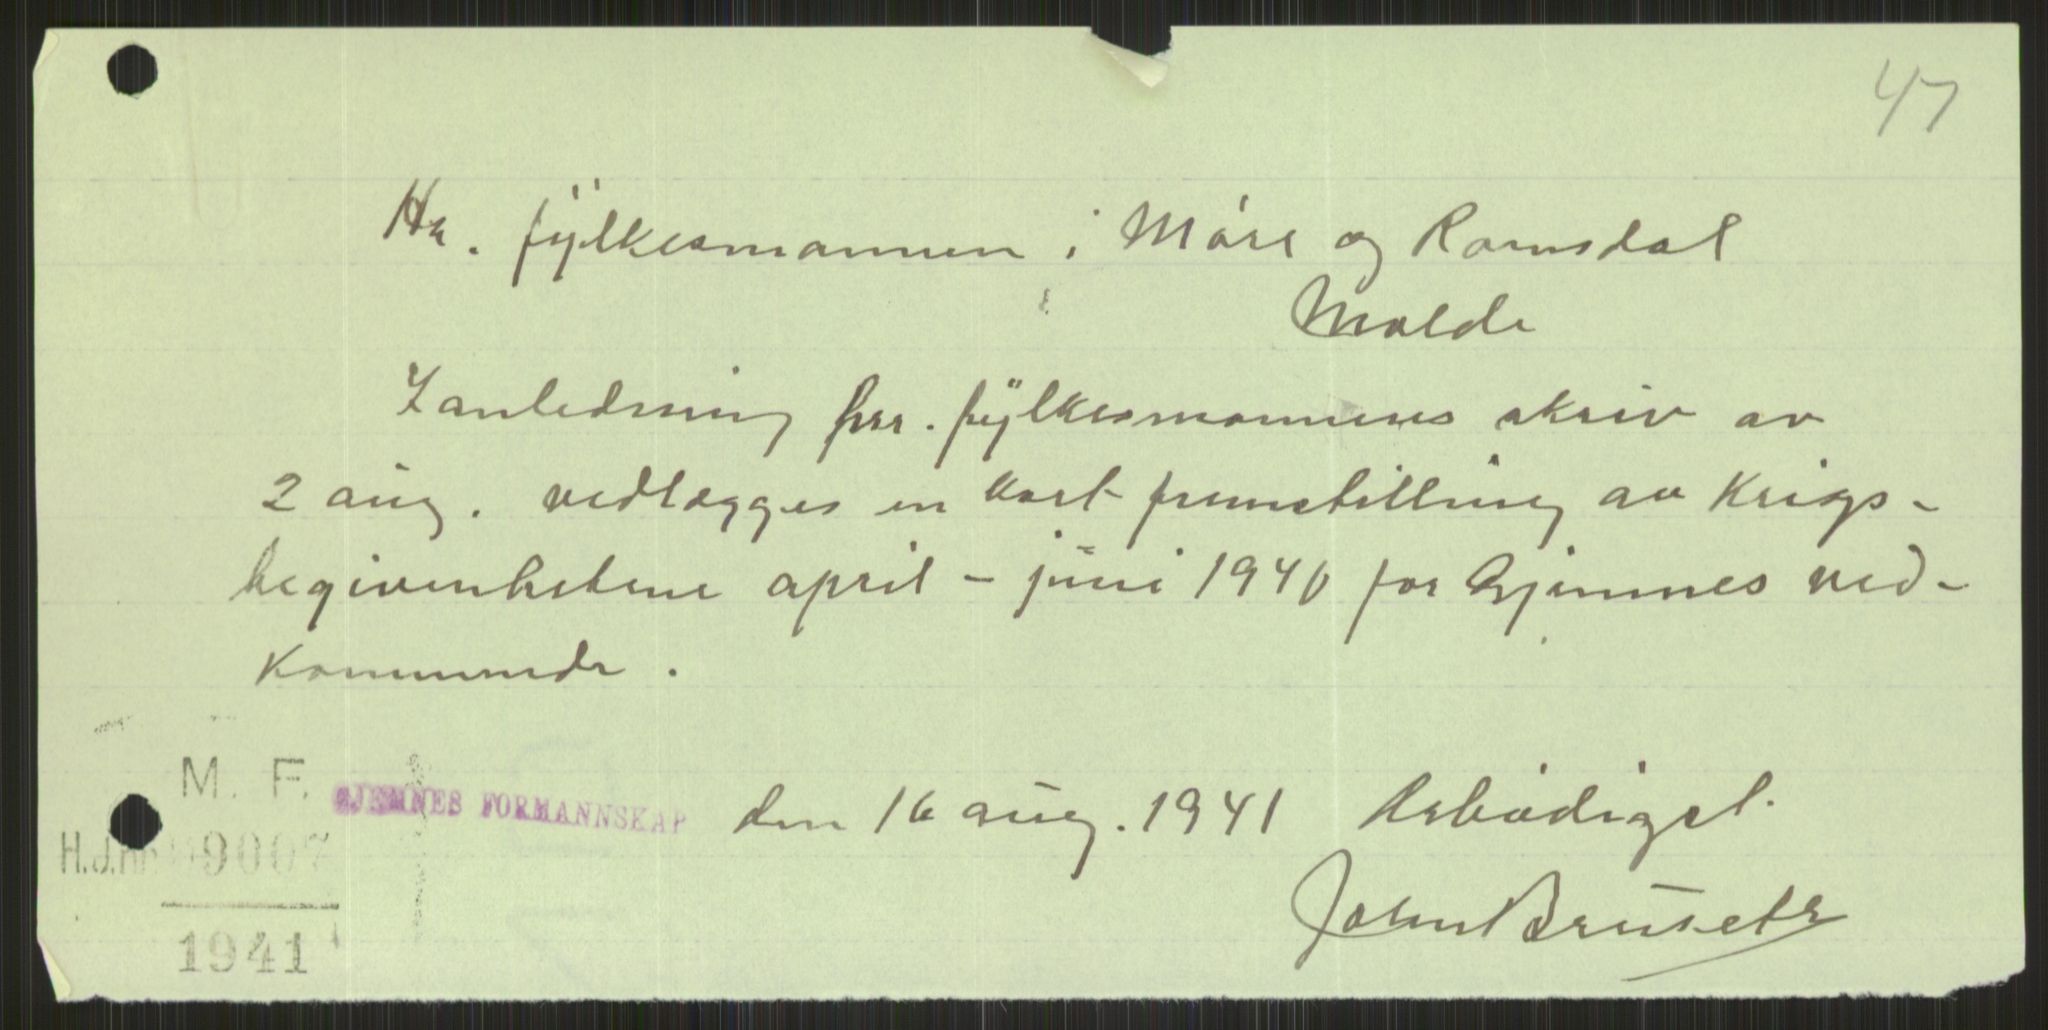 47
Hr. fylkesmannen i Møre og Romsdal
Molde
I anledning hrr. fylkesmannens skriv av
2 aug. vedlægges en kort fremstilling av Krigs-
begivenhetene april – juni 1940 for Gjemnes ved-
kommende.
M. F.
GJEMNES FORMANNSKAP den 16 aug. 1941 Ærbødigst
H.J.nr 09007
John Bruseth
1941